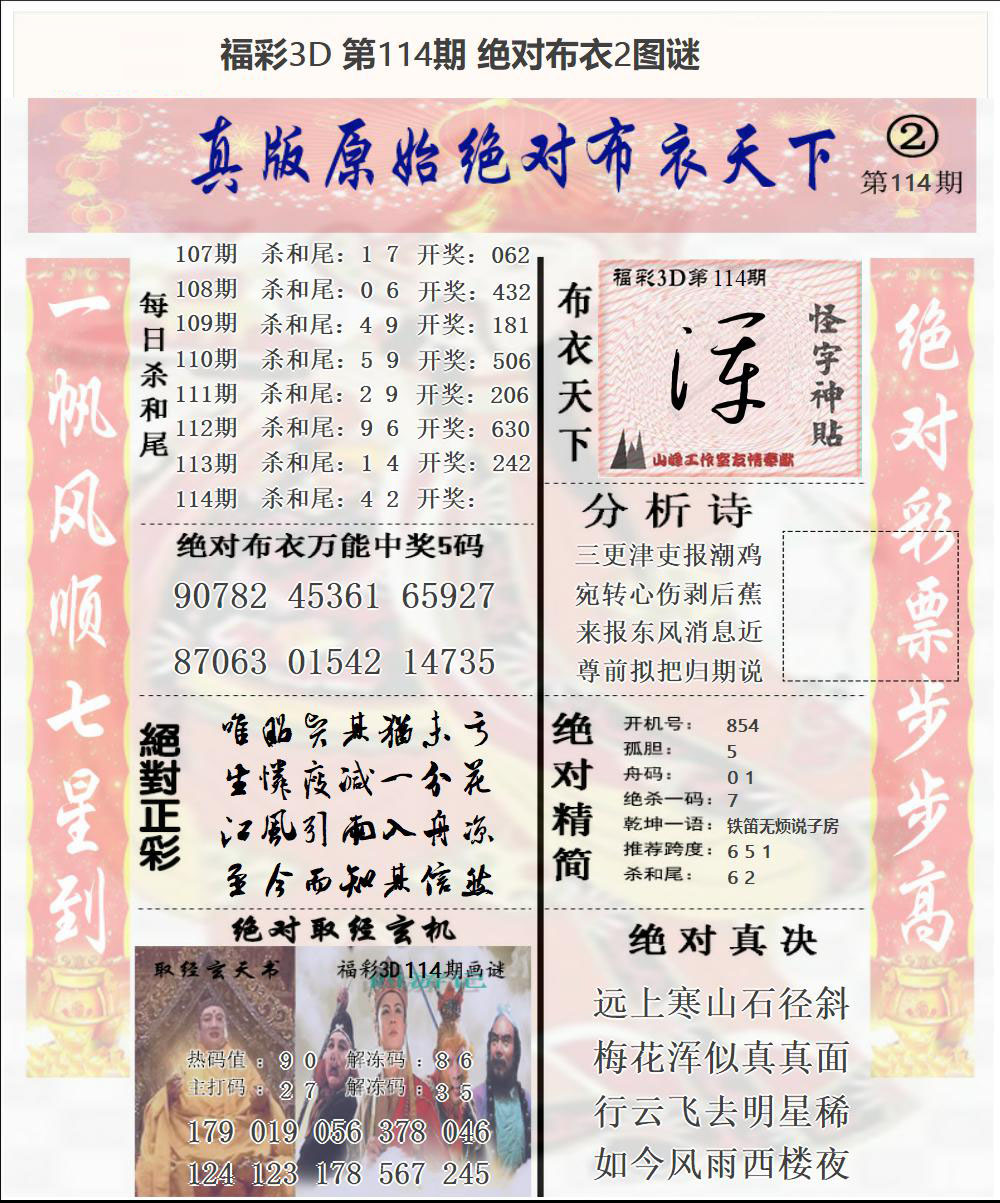 福彩3D 第114期 绝对布衣2图谜
真版原始绝对布衣天下
②
第114期
一帆风顺七星到
每日杀和尾
107期 杀和尾：1 7 开奖：062
108期 杀和尾：0 6 开奖：432
109期 杀和尾：4 9 开奖：181
110期 杀和尾：5 9 开奖：506
111期 杀和尾：2 9 开奖：206
112期 杀和尾：9 6 开奖：630
113期 杀和尾：1 4 开奖：242
114期 杀和尾：4 2 开奖：
绝对布衣万能中奖5码
90782 45361 65927
87063 01542 14735
絕對正彩
唯 昭 其 猶 未 亏
生憐疫减一分花
江風引雨入舟凉
至今而知其信然
绝对取经玄机
取经玄天书
福彩3D114期画谜
热码值：9 0 解冻码：8 6
主打码：2 7 解冻码：3 5
179 019 056 378 046
124 123 178 567 245
布衣天下
福彩3D第114期
怪字神貼
山峰工作室友情奉献
分析诗
三更津吏报潮鸡
宛转心伤剥后蕉
来报东风消息近
尊前拟把归期说
绝对精简
开机号： 854
孤胆： 5
舟码： 0 1
绝杀一码：7
乾坤一语：铁笛无烦说子房
推荐跨度：6 5 1
杀和尾： 6 2
绝对真决
远上寒山石径斜
梅花浑似真真面
行云飞去明星稀
如今风雨西楼夜
绝对彩票步步高